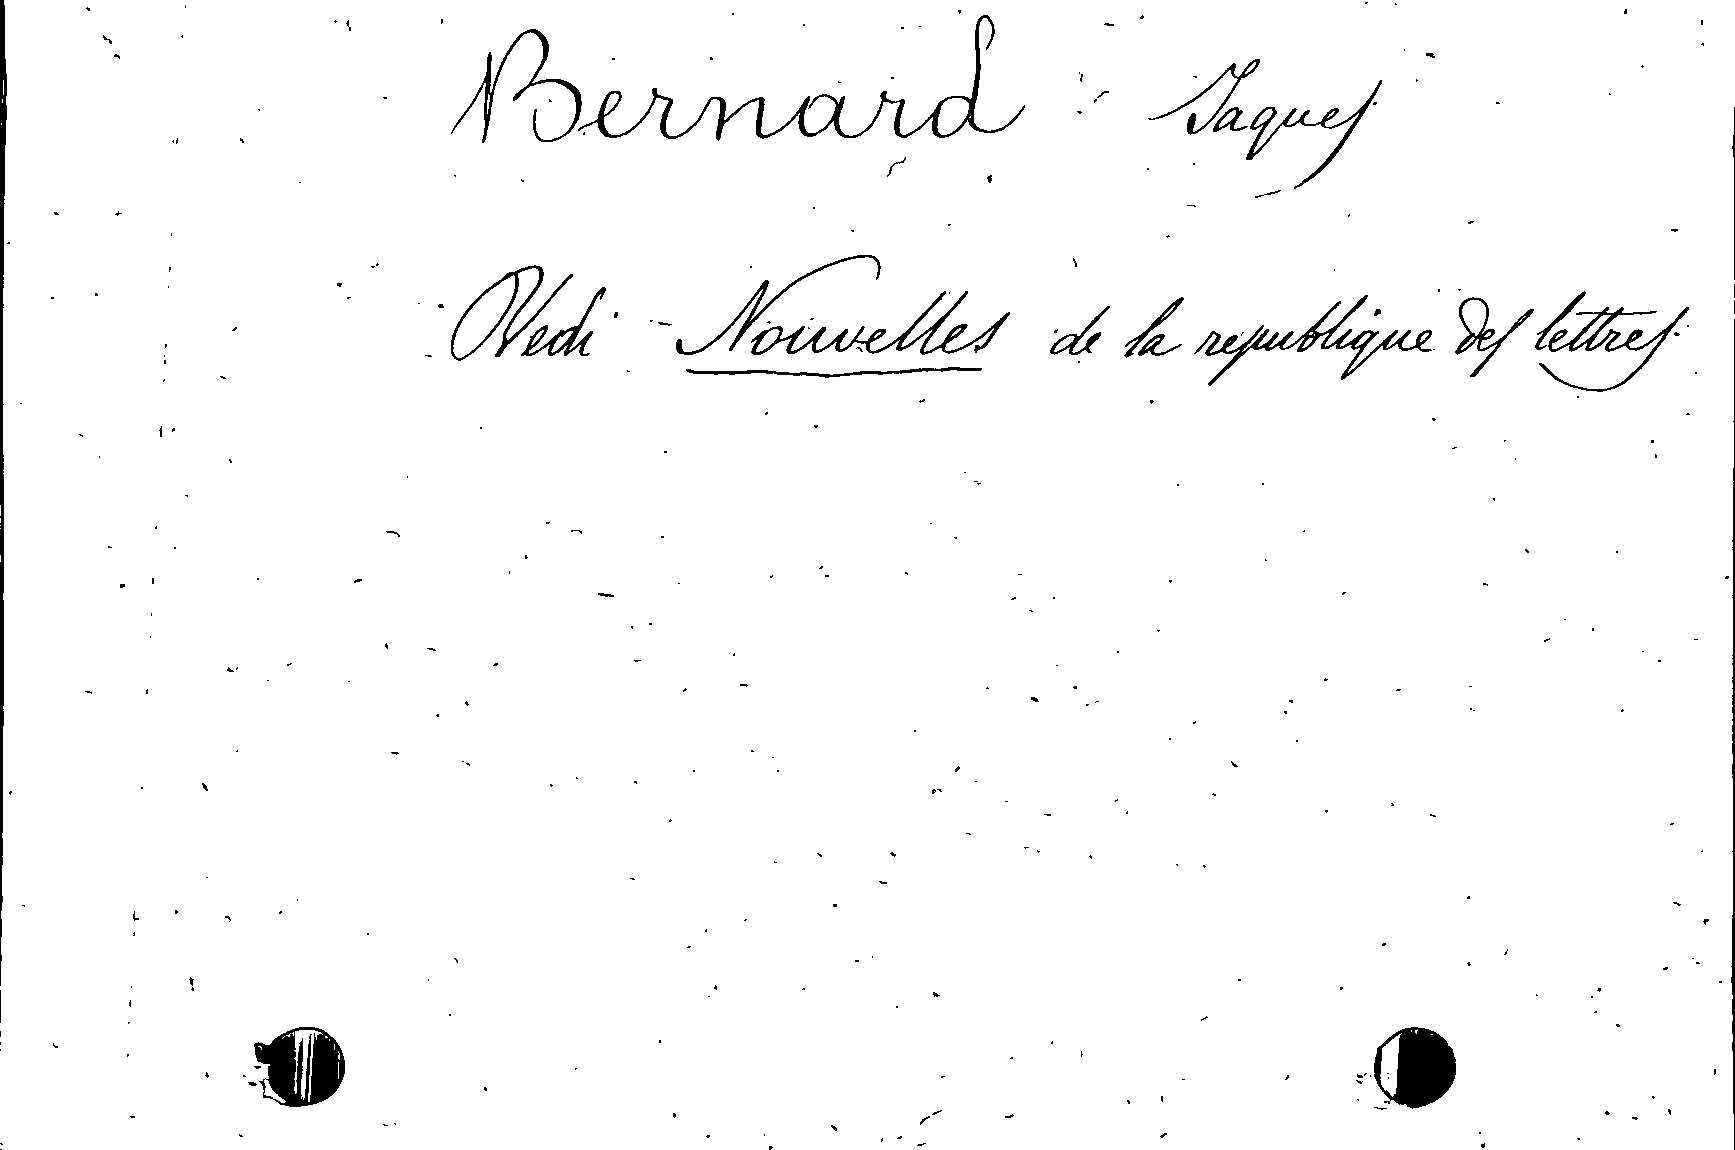 Bernard Jaques
Vedi Nouvelles de la republique des lettres